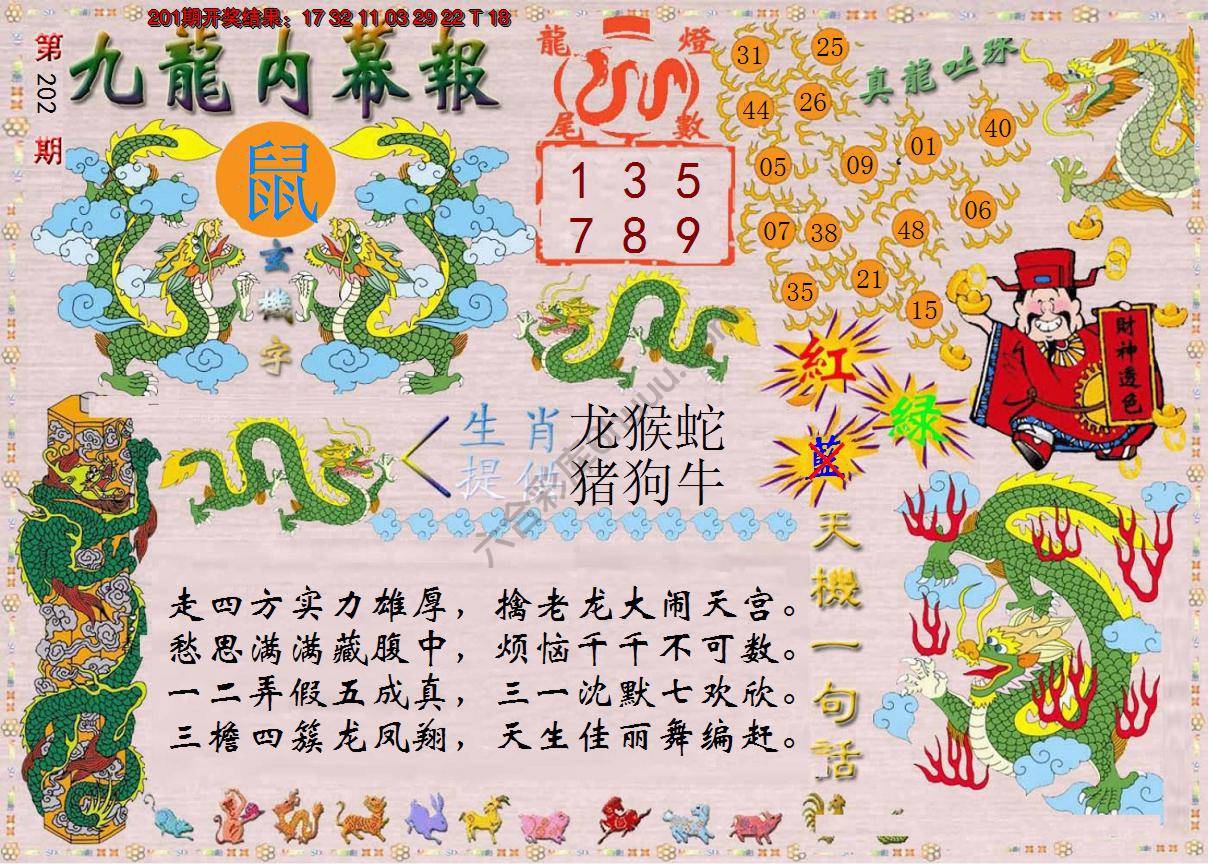 201期开奖结果：17 32 11 03 29 22 T 18
第202期
九龍内幕報
鼠
玄機字
龍燈
尾數
1 3 5
7 8 9
真龍吐珠
31 25
44 26
05 09 01 40
07 38 48 06
35 21 15
紅
綠
藍
財神透色
生肖 龙猴蛇
提供 猪狗牛
走四方实力雄厚，擒老龙大闹天宫。
愁思满满藏腹中，烦恼千千不可数。
一二弄假五成真，三一沈默七欢欣。
三檐四簇龙凤翔，天生佳丽舞编赶。
天機一句話